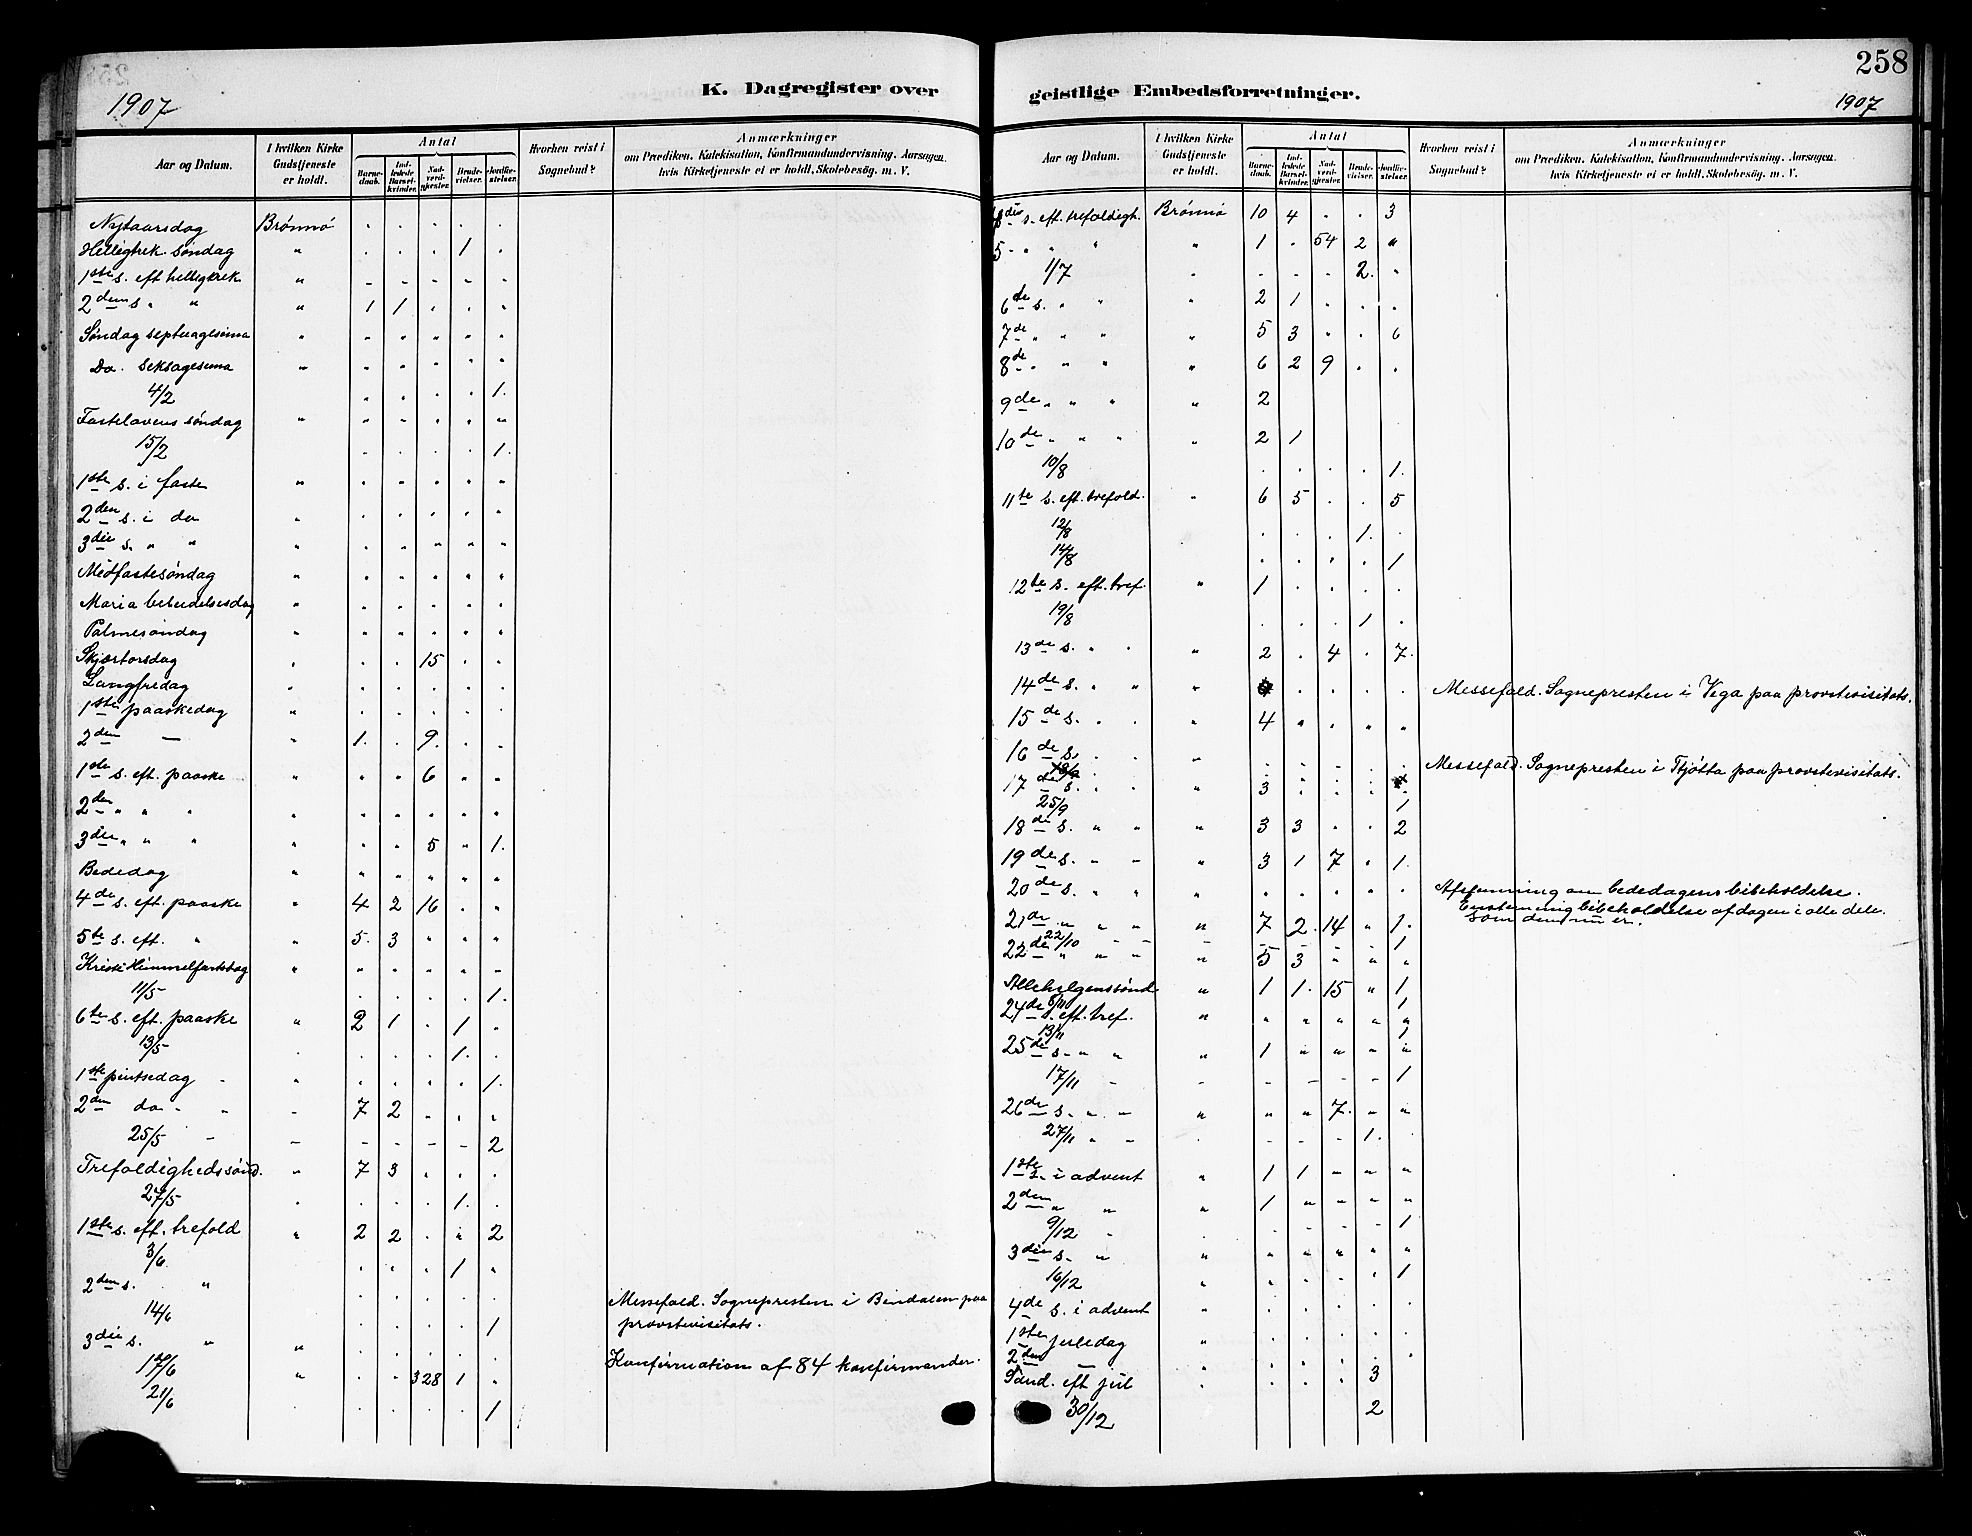 258
K. Dagregister over geistlige Embedsforretninger.
1907
1907
Aar og Datum.
I hvilken Kirke Gudstjeneste er holdt.
Antal
Barnedaab.
Indledede Barselkvinder.
Nadverdgjester.
Brudevielser.
Jordfæstelser.
Hvorhen reist i Sognebud?
Anmærkninger
om Prædiken, Katekisation, Konfirmandundervisning, Aarsagen,
hvis Kirketjeneste ei er holdt, Skolebesøg m. V.
Nytaarsdag Brønnø . . . . .
Helligtrek. søndag " . . . 1 .
1ste s. eft helligtrek " . . . . .
2den s. " " 1 1 . . .
Søndag septuagesima " . . . . .
Do. Seksagesima " . . . . .
4/2 . . . . 1.
Fastelavens søndag " . . . . "
15/2 . . . . 1.
1ste s. i faste " " " " " "
2den s. i do " . . . . .
3die s. " " " . . " " "
Midfastesøndag " " " " " "
Maria bebudelsesdag " " " " " "
Palmesøndag " " " " " "
Skjærtorsdag . . . 15 . .
Langfredag " . . . . .
1ste paaskedag " . . . . .
2den — " 1. . 9. . .
1ste s. eft. paaske " " " 6 " "
2den " " " " . . . . .
3die " " " " . " 5 " 1.
Bededag " " " " " "
4de s. eft. paaske " 4 2 16 . .
5te s. eft. " " 5. 3 " " "
Kristi Himmelfartsdag " " " " " "
11/5 . . . . 1.
6te s. eft. paaske " 2 1 . 1 .
13/5 . . . . 1. .
1ste pintsedag - " . . . . 1.
2den do - " - 7 2 . . .
25/5 - - - - - - 2
Trefoldighedssønd. " 7 3 . . .
27/5 . . . . 1. .
1ste s. eft. trefold " 2 2 . " 2
3/6 . . . 1 "
2den s. " . . . . . Messefald. Sognepresten i Bindalen paa
provstevisitats.
14/6 . . . . 1
3die s. " " . . . . .
17/6 " . . 328 1 . Konfirmation af 84 konfirmander.
21/6 . . . . . 1
Aar og Datum.
I hvilken Kirke Gudstjeneste er holdt.
Antal
Barnedaab.
Indledede Barselkvinder.
Nadverdgjester.
Brudevielser.
Jordfæstelser.
Hvorhen reist i Sognebud?
Anmærkninger
om Prædiken, Katekisation, Konfirmandundervisning, Aarsagen,
hvis Kirketjeneste ei er holdt, Skolebesøg m. V.
4die s. eft. trefoldigh. Brønnø 10 4 . . 3
5 - " " " " 1 . 54 2 "
1/7 . . . . 2. "
6te s. " " " 2 1 . . .
7de " " " " 5 3 " . 6
8de " " " " 6 2 9 . .
9de " " " " 2
10de " " " " 2 1
10/8 . . . . 1.
11te s. eft. trefold. " 6 5 . . 5
12/8 . . . 1. .
14/8 . . . . 1
12te s. eft. tref. " 1 . . . .
19/8 . . . 1 .
13de s. " " " 2 . 4 . 7.
14de s. " " " . . . . Messefald. Sognepresten i Vega paa provstevisitats.
15de s. " . " 4 " . " "
16de s. . . " . . . . . Messefald. Sognepresten i Tjøtta paa provstevisitats.
17de s. " . " 3 . . . .
25/9 1
18de s. " " " 3 3 . . 2
19de s. " " " 3 1 7 . 1.
20de s. " " " . . . . . Afstemning om bededagens bibeholdelse.
Enstemmig bibeholdelse af dagen i alle dele
som den nu er.
21de " " " " 7 2. 14 " 1.
22/10 - - - - - - - 1
22de " " " " 5 3 " " "
Allehelgenssønd " 1 1. 15 " 1
8/11 1
24de s. eft. tref. " " " " " "
13/11 1
25de s. " " " 1 " " " "
17/11 - - - - - - 1
26de s. " " " " " 7. " "
27/11 " - . - - - 1. .
1ste s. i advent " 1 1 - " "
2den " " " 1 " " " "
9/12 " . . . . . 1
3die s. " " " " " " "
16/12 " . . . . 1
4de s. i advent " . . . . .
1ste juledag " . . . . .
2den — " . . . . .
Sønd. eft jul . . . . 3
30/12 2